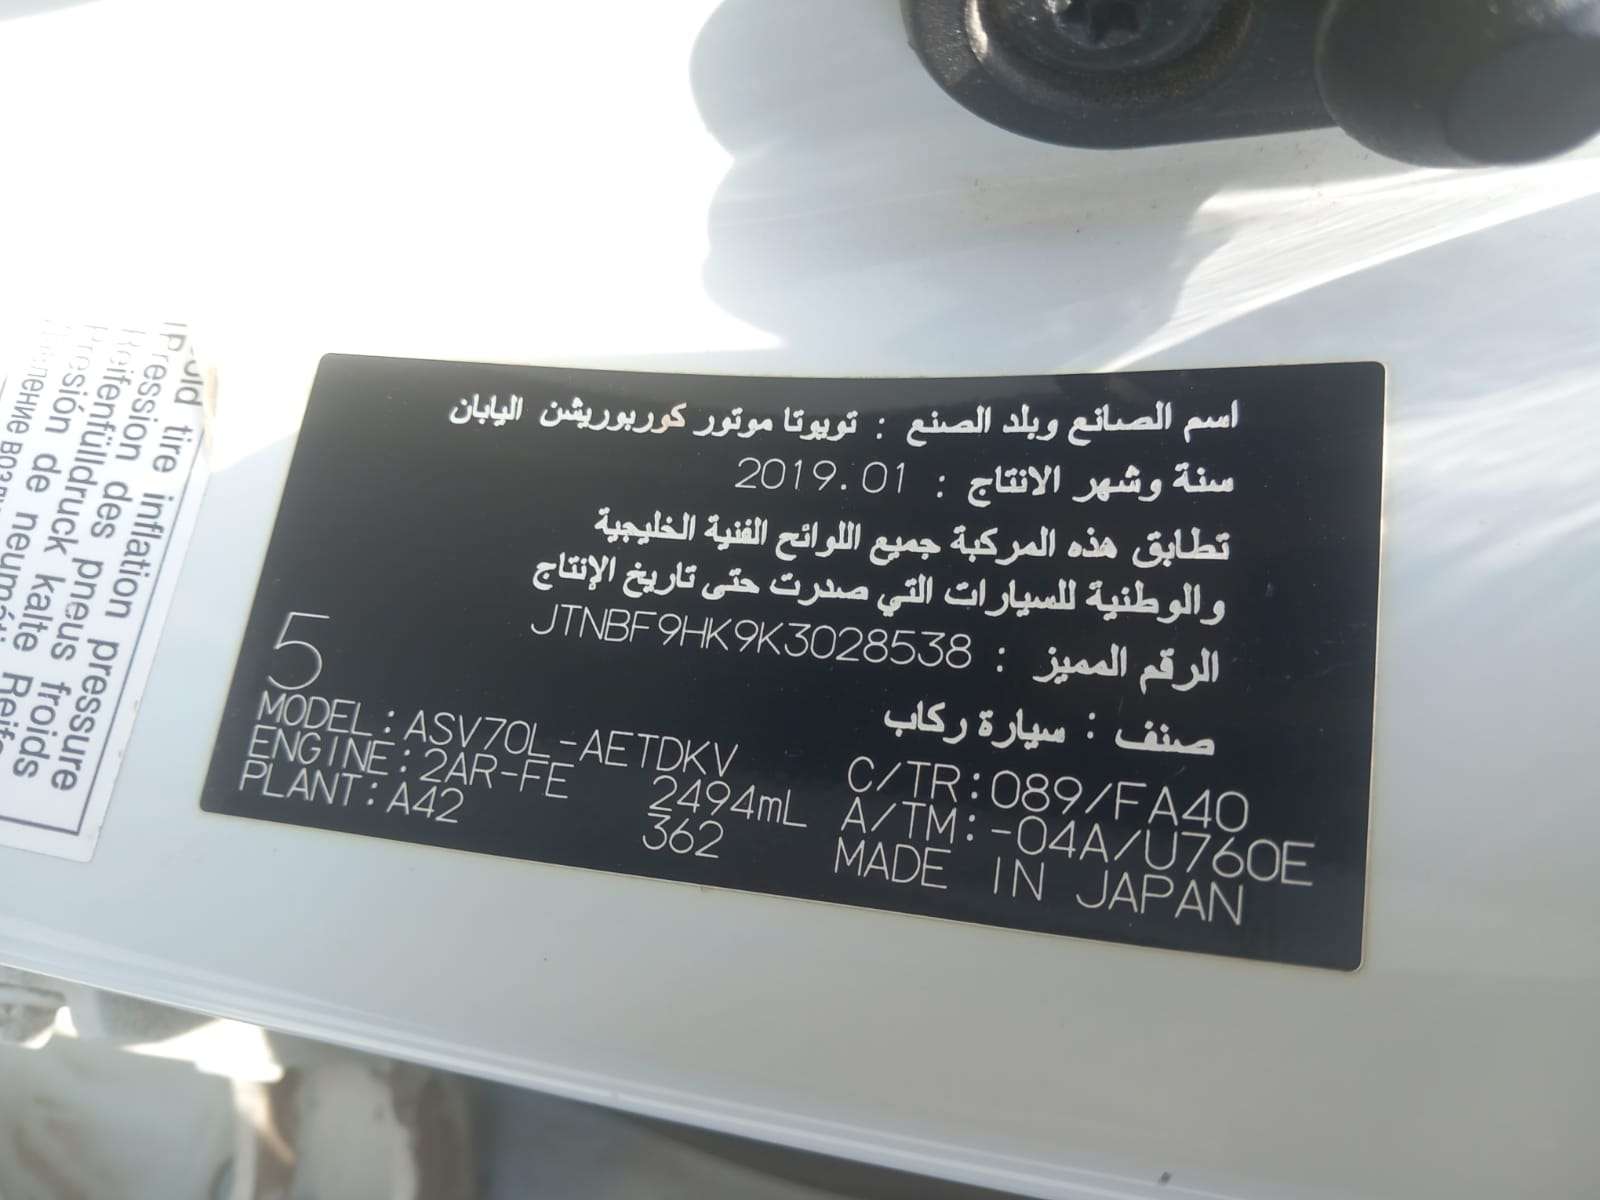 اسم الصانع وبلد الصنع : تويوتا موتور كوربوريشن اليابان
سنة وشهر الانتاج : 2019.01
تطابق هذه المركبة جميع اللوائح الفنية الخليجية
والوطنية للسيارات التي صدرت حتى تاريخ الإنتاج
الرقم المميز : JTNBF9HK9K3028538
صنف : سيارة ركاب
5
MODEL:ASV70L-AETDKV C/TR:089/FA40
ENGINE:2AR-FE 2494mL A/TM:-04A/U760E
PLANT:A42 362 MADE IN JAPAN
tire inflation pressure
Pression des pneus froids
Reifenfülldruck kalte
de